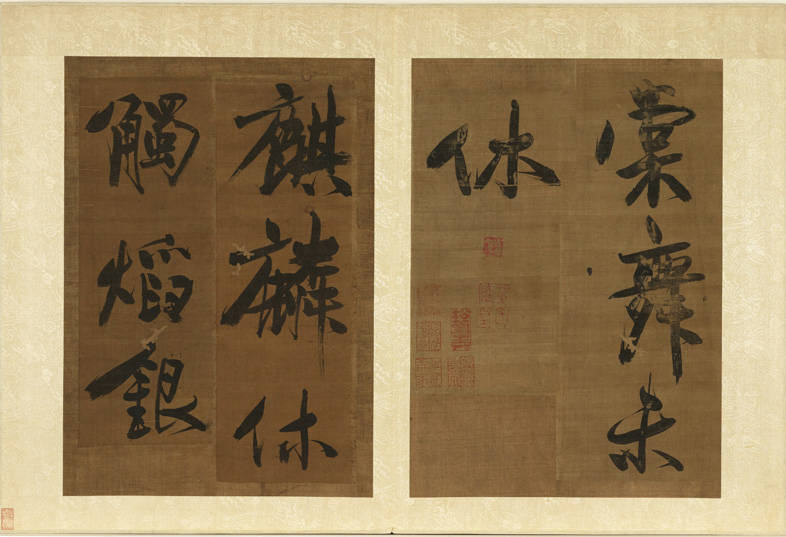 裳舞未
休
麒麟休
觸焰銀